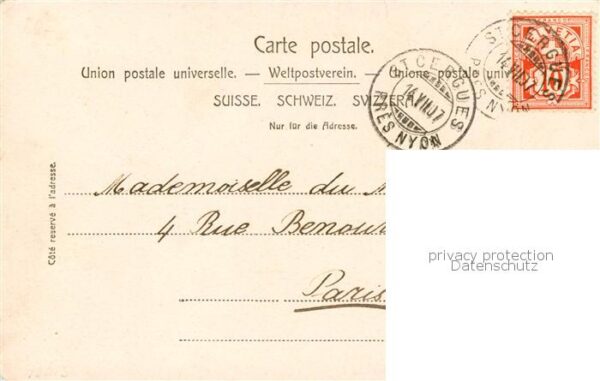 Carte postale.
Union postale universelle. — Weltpostverein. — Unione postale univer
SUISSE. SCHWEIZ. SVIZZERA
Nur für die Adresse.
ST CERGUES
14.VII.07
PRÈS NYON
ST CERGUES
14.VII.07
PRÈS NYON
HELVETIA
FRANCO
Côté réservé à l'adresse.
Mademoiselle du
4 Rue
Paris
privacy protection
Datenschutz